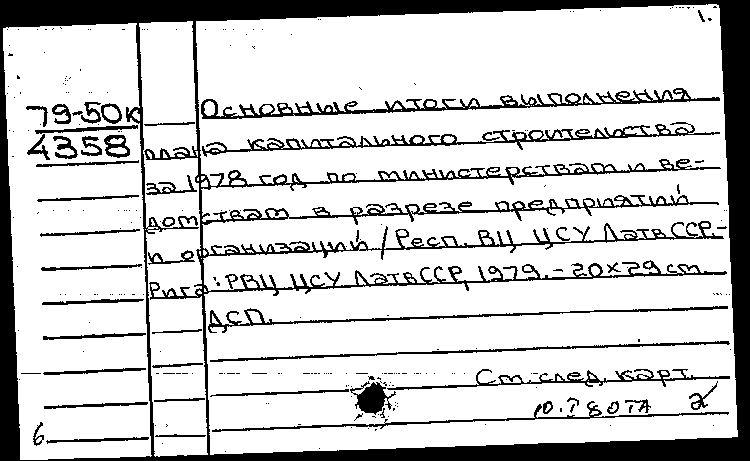 1.
79-50к
4358
Основные итоги выполнения
плана капитального строительства
за 1978 год по министерствам и ве-
домствам в разрезе предприятий
и организаций / Респ. ВЦ ЦСУ ЛатвССР.-
Рига: РВЦ ЦСУ ЛатвССР, 1979. - 20×29 см.
ДСП.
См. след. карт.
2
6